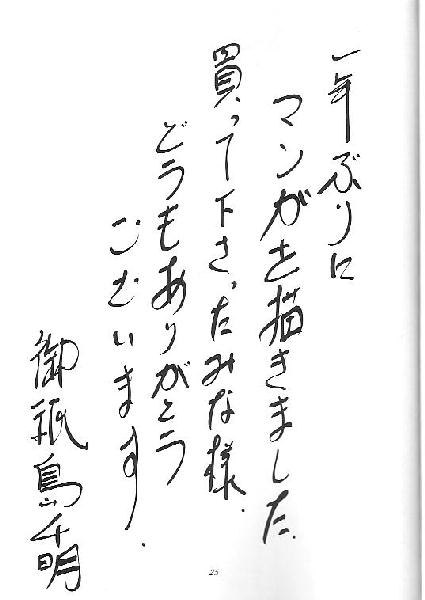 一年ぶりに
マンガを描きました.
買って下さったみな様.
どうもありがとう
ございます.
御祇島千明
25